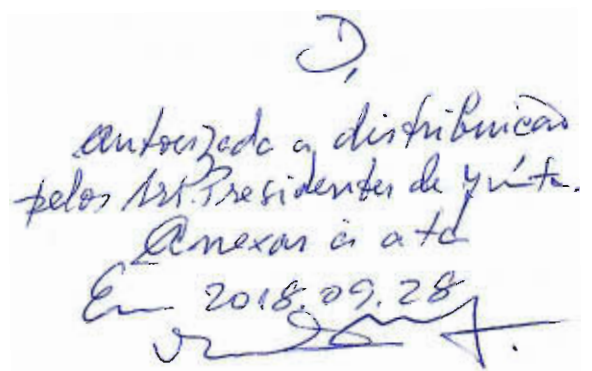 D,
Autorizada a distribuição
pelos Srs. Presidentes de Junta.
Anexar à ata
Em 2018.09.28